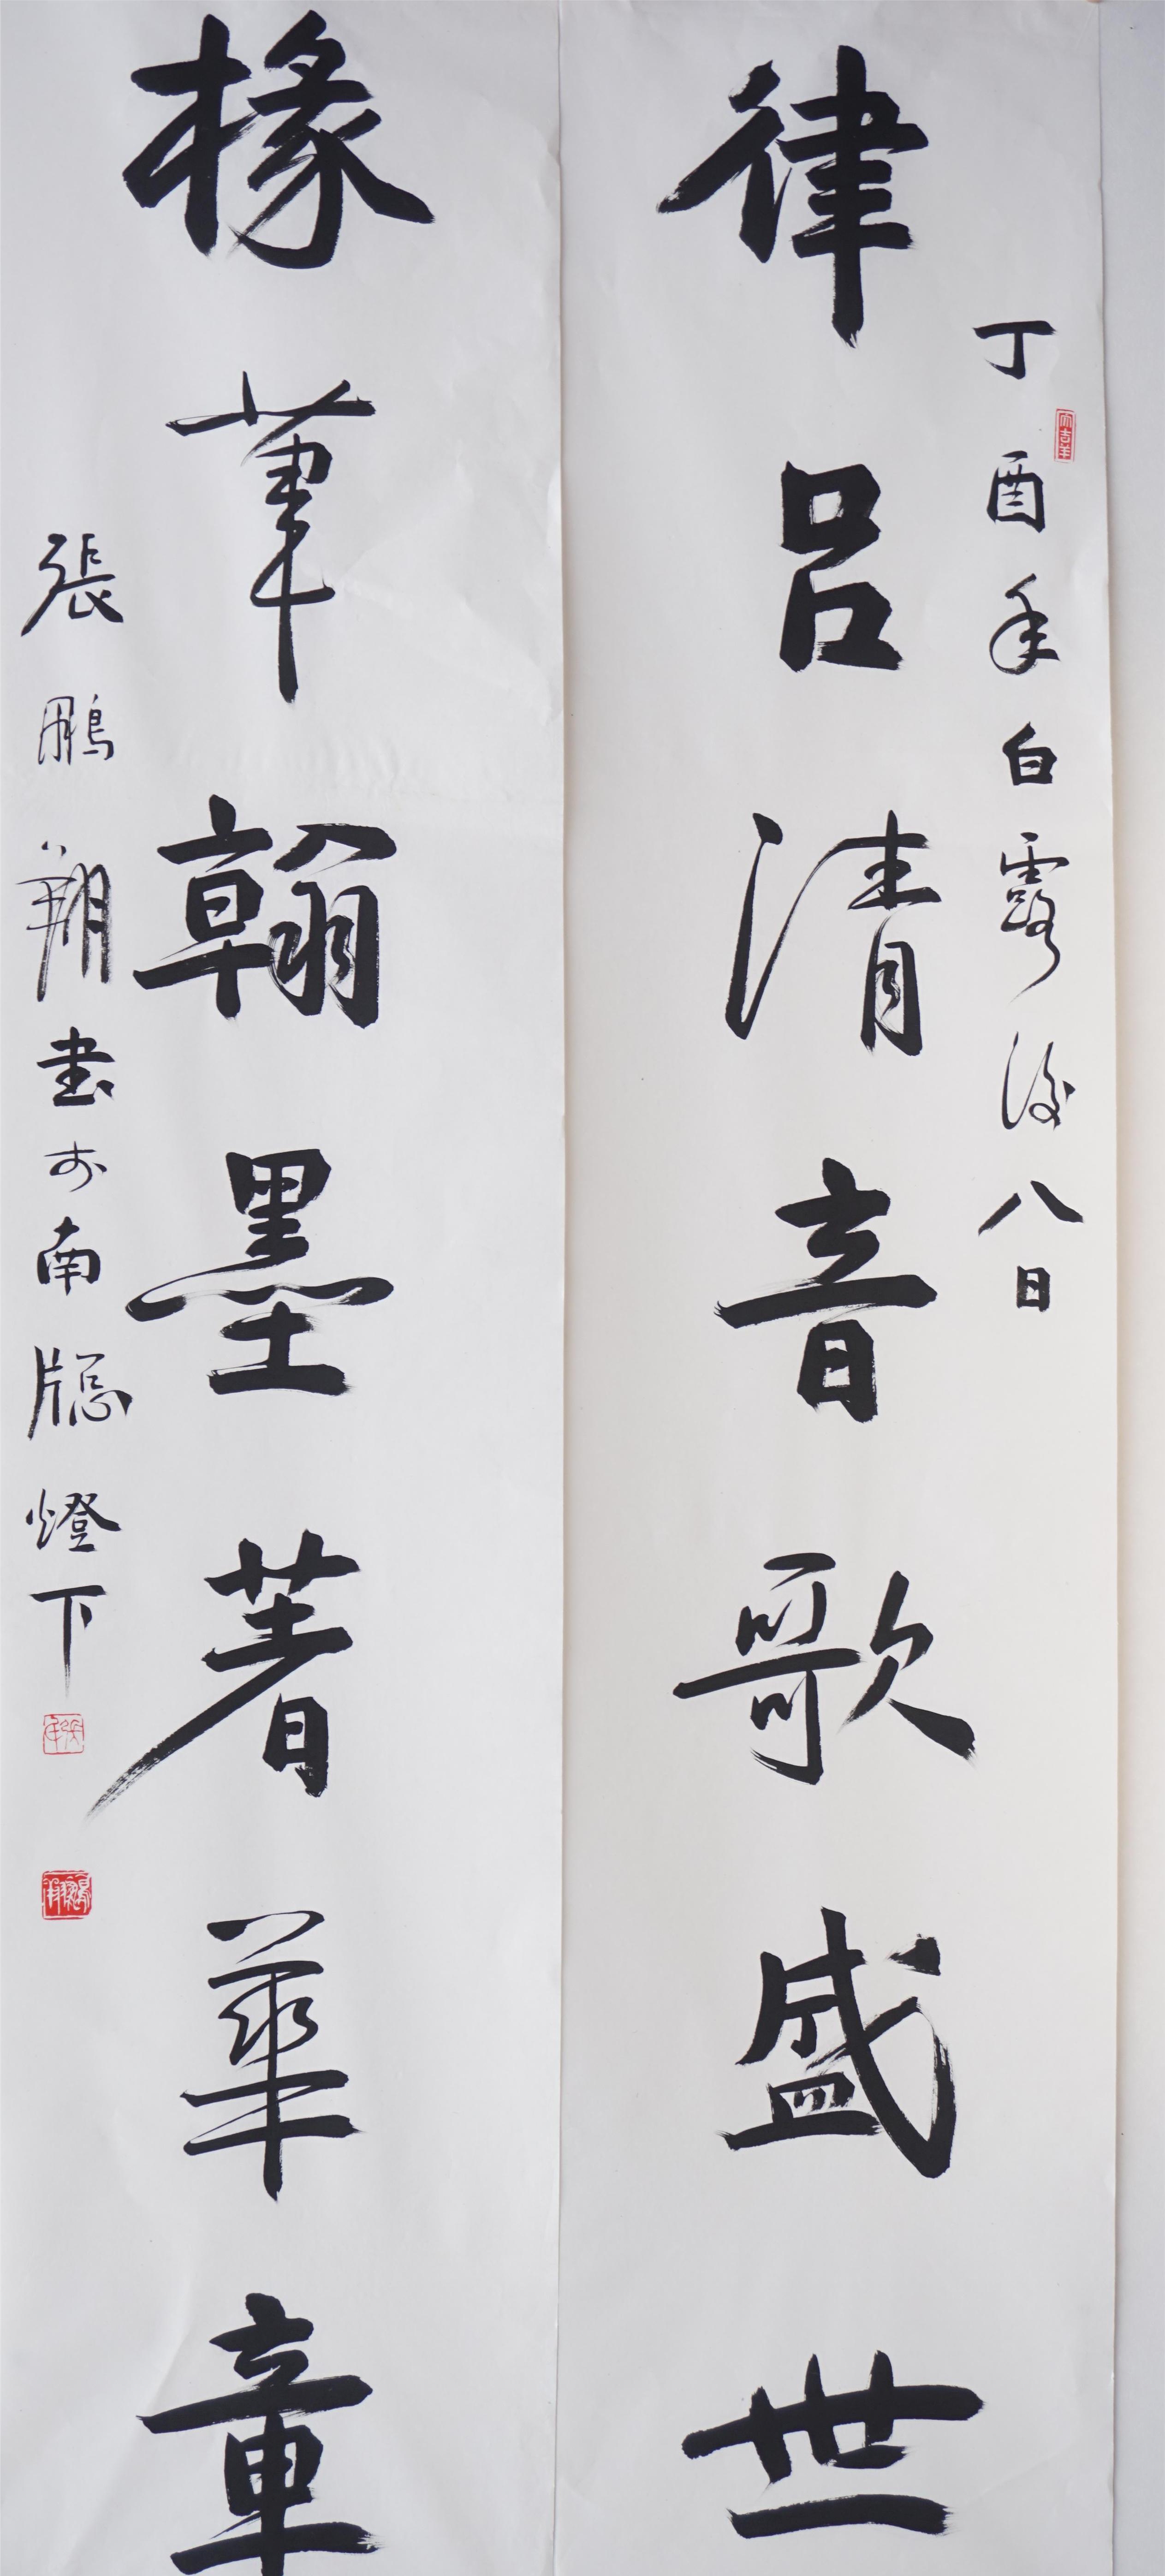 丁酉年白露後八日
律呂清音歌盛世
椽筆翰墨著華章
張鵬翔書於南牕燈下
大吉羊